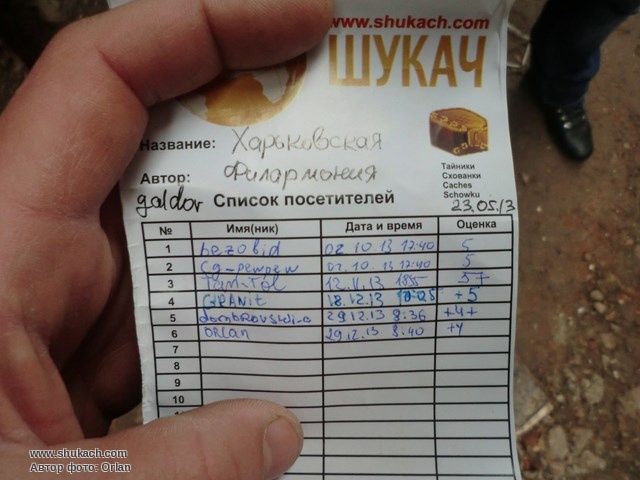 www.shukach.com
ШУКАЧ
Название: Харьковская
Автор: Филармония
Тайники
Схованки
Caches
Schowku
goldor Список посетителей 23.05.13
№ Имя(ник) Дата и время Оценка
1 bezobid 02.10.13 17:40 5
2 02.10.13 17:40 5
3 12.11.13 5+
4 GRANit 18.12.13 +5
5 29.12.13 8:36 +4+
6 orlan 29.12.13 8:40 +4
7
8
9
10
www.shukach.com
Автор фото: Orlan